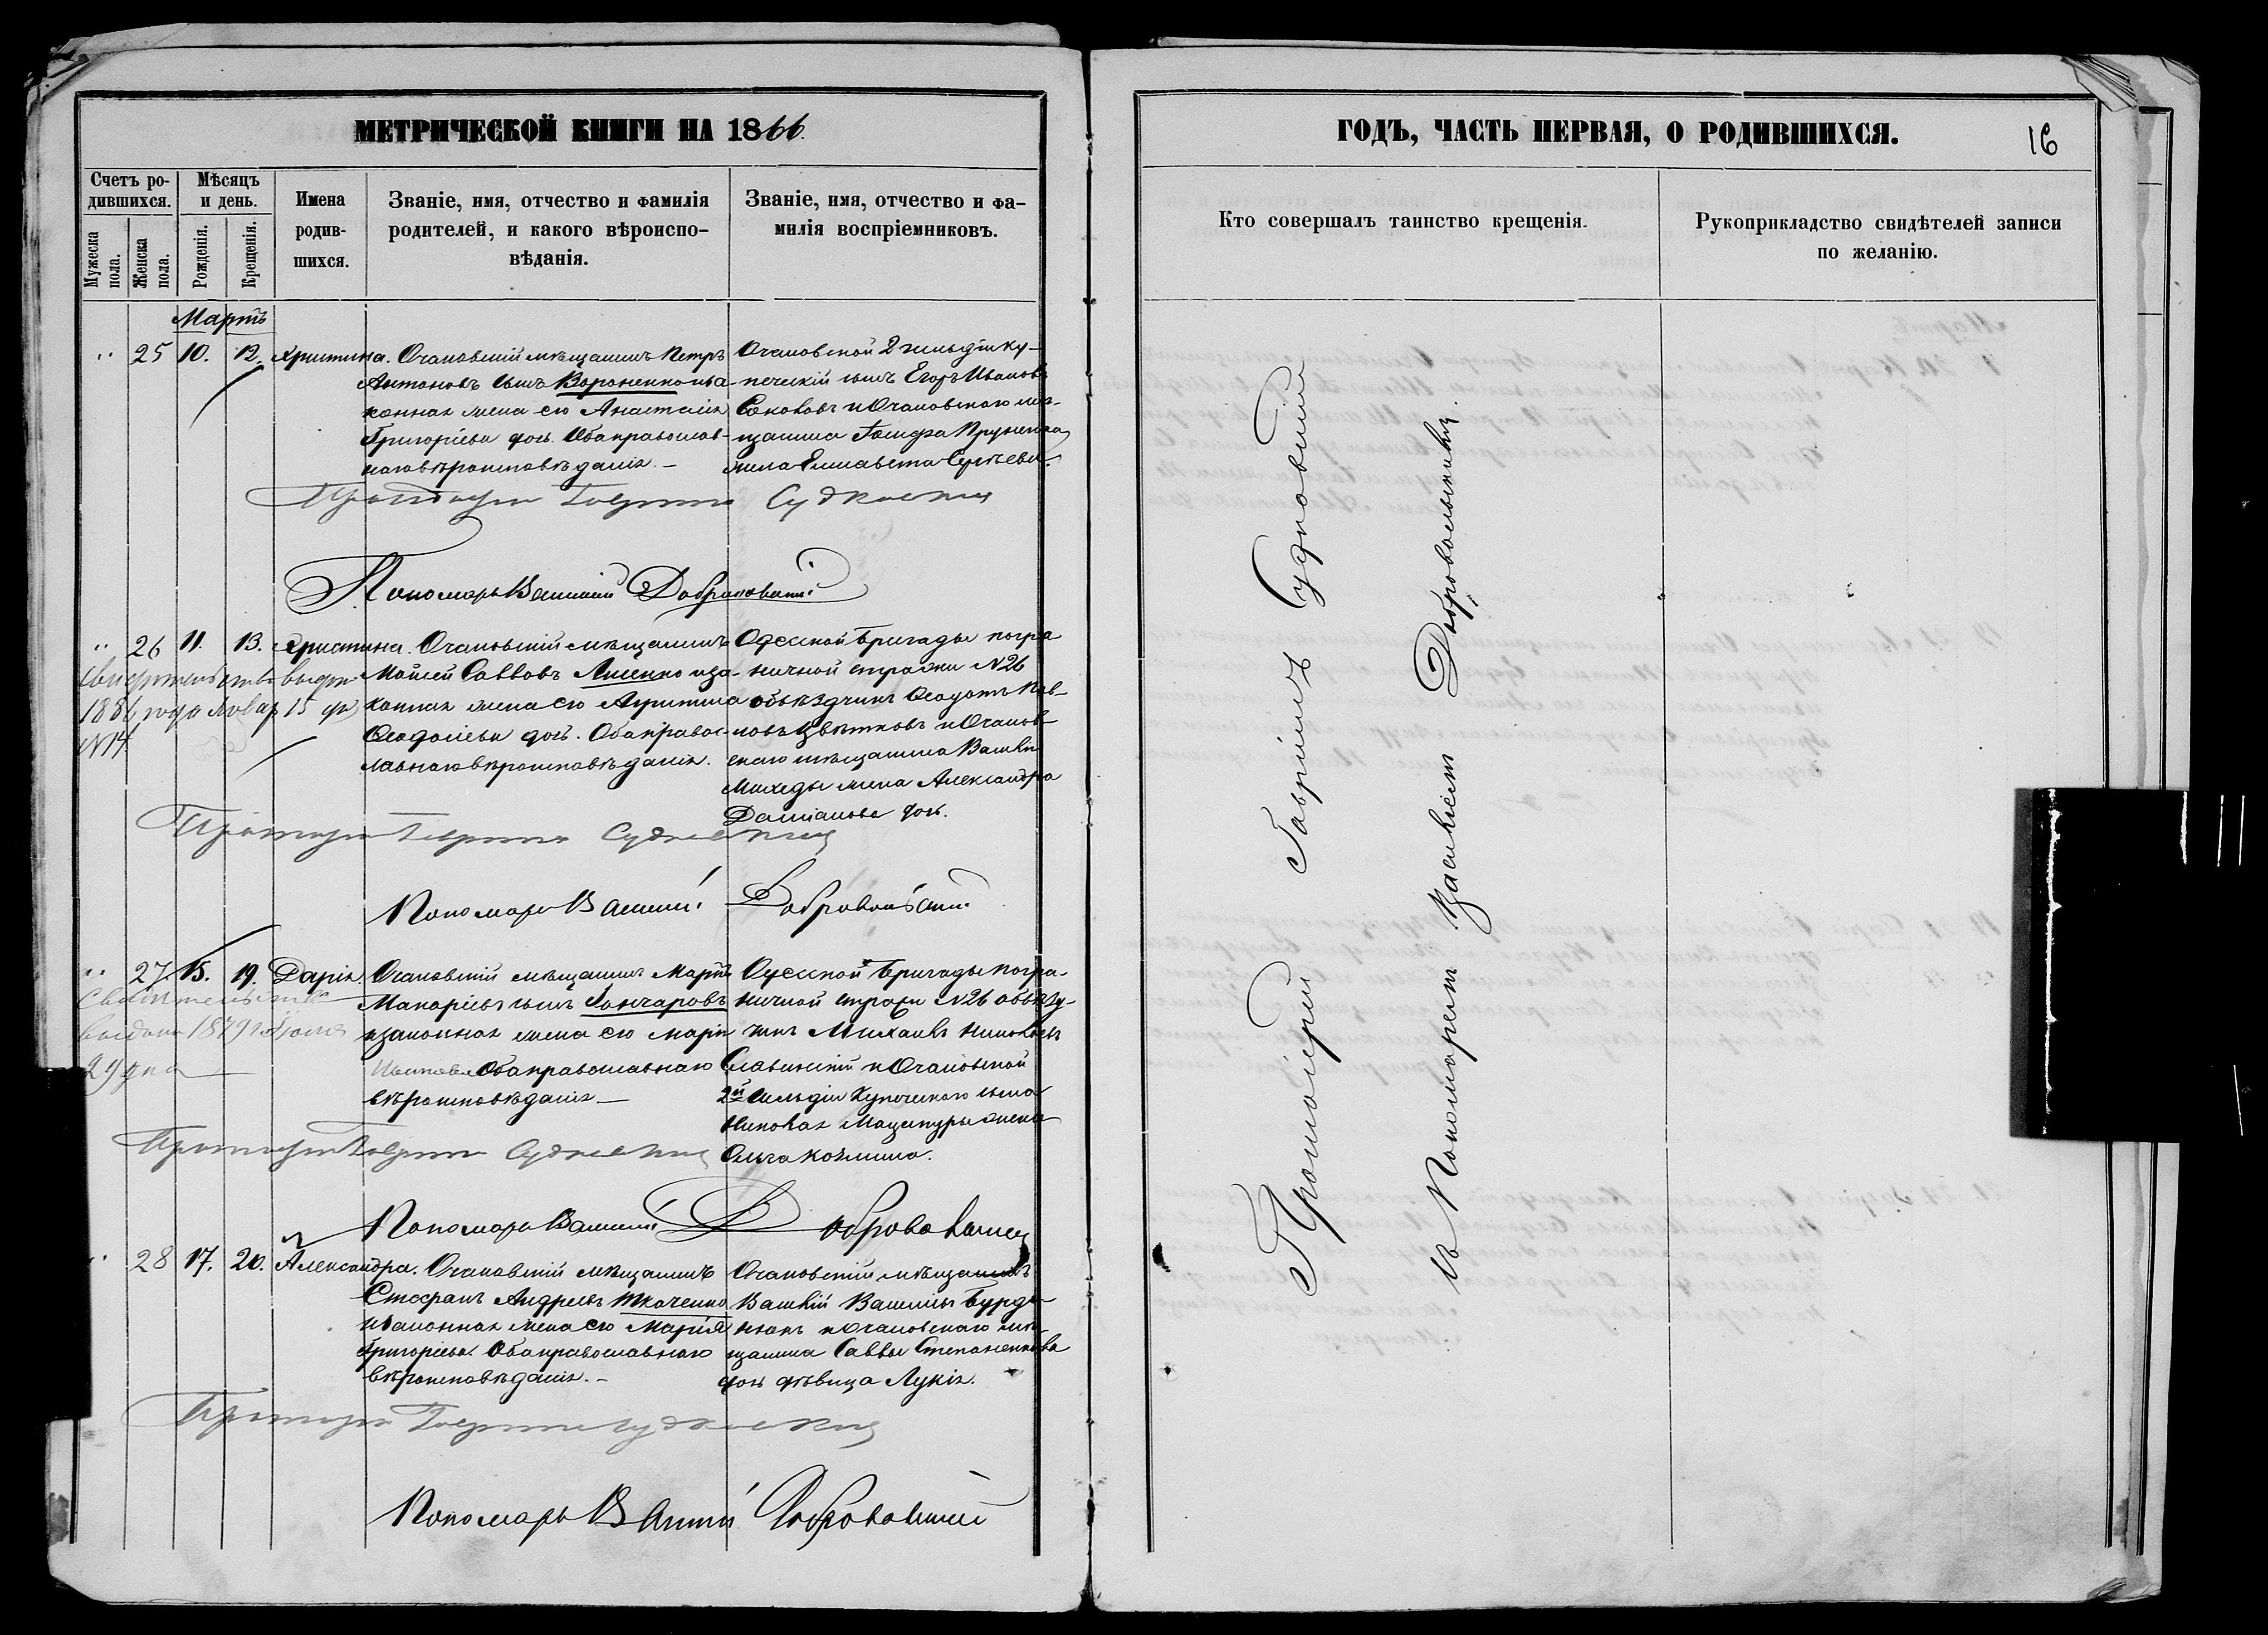 МЕТРИЧЕСКОЙ КНИГИ НА 1866.
Счетъ ро-
дившихся.
Мѣсяцъ
и день.
Мужеска
пола.
Женска
пола.
Рожденія.
Крещенія.
Имена
родив-
шихся.
Званіе, имя, отчество и фамилія
родителей, и какого вѣроиспо-
вѣданія.
Званіе, имя, отчество и фа-
милія воспріемниковъ.
Мартъ
" 25 10. 12. Христина. Очаковскій мѣщанинъ Петръ
Антоновъ сынъ Вороненко и за-
конная жена его Анастасія
Григорьева дочь. Оба православ-
наго вѣроисповѣданія. –
Очаковской 2 гильдіи ку-
печескій сынъ Егоръ Ивановъ
Соколовъ и Очаковского мѣ-
щанина Іосифа
жена Елисавета Сергѣева.
Протоіерей Гавріилъ Судковскій
Пономарь Василій Добровольскій
" 26 11. 13. Христина. Очаковскій мѣщанинъ
Мойсей Саввовъ Лисенко и за-
конная жена его Христина
Ѳеодосіева дочь. Оба правос-
лавнаго вѣроисповѣданія.
Одесской бригады погра
ничной стражи N26
объѣздчикъ Ѳеодотъ Пав-
ловъ Цвѣтковъ и Очаков-
скаго мѣщанина Василія
Михеды жена Александра
Даміанова дочь.
Свидѣтельство выдан
1886 года Января 15 дня
N14
Протоіерей Гавріилъ Судковскій
Пономарь Василій Добровольскій
" 27 15. 19. Дарія. Очаковскій мѣщанинъ Мартинъ
Макаріевъ сынъ Гончаровъ
и законная жена его Марія
Иванова Оба православнаго
вѣроисповѣданія –
Одесской бригады погра-
ничной стражи N26 объѣзд-
чикъ Михаилъ Николаевъ
Славинскій и Очаковской
2й гильдіи купеческаго сына
Николая Мацепуры жена
Ольга Козьмина.
Свидѣтельство
выдано 1879 г. Іюля
29 дня
Протоіерей Гавріилъ Судковскій
Пономарь Василій Добровольскій
" 28 17. 20. Александра. Очаковскій мѣщанинъ
Стефанъ Андреевъ Ткаченко
и законная жена его Марія
Григорьева Оба православнаго
вѣроисповѣданія. –
Очаковскій мѣщанинъ
Василій Васильевъ
и Очаковскаго мѣ-
щанина Саввы Степаненкова
дочь дѣвица Лукія.
Протоіерей Гавріилъ Судковскій
Пономарь Василій Добровольскій
ГОДЪ, ЧАСТЬ ПЕРВАЯ, О РОДИВШИХСЯ.
16
Кто совершалъ таинство крещенія.
Рукоприкладство свидѣтелей записи
по желанію.
Протоіерей Гавріилъ Судковскій
съ Пономаремъ Василіемъ Добровольскимъ.